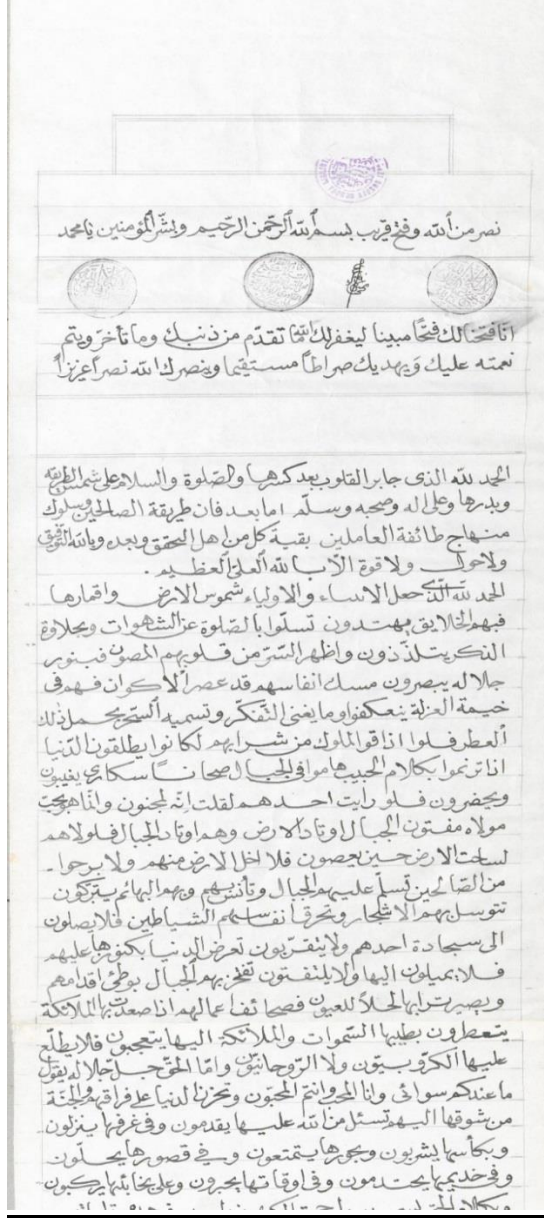 نصر من ٱلله وفتح قريب بسم ٱلله ٱلرّحمن الرّحيم وبشّر ٱلمؤمنين يا محمد
انّا فتحنا لك فتحًا مبينا ليغفر لك الله ما تقدّم من ذنبك وما تأخر ويتم
نعمته عليك وَيهديك صراطاً مستقيما وينصرك الله نصراً عزيزاً
الحمد لله الذى جابر القلوب بعد كسرها والصّلوة والسلام على شمس الطريقه
وبدرها وعلى اله وصحبه وسلّم امابعد فان طريقة الصالحين وسلوك
منهاج طائفة العاملين بقية كل من اهل التحقق وبعده وبالله التوفيق
ولاحول ولا قوة الّا بالله ٱلعلىّ ٱلعظيم .
الحمد لله ٱلّذى جعل الانبياء والاولياء شموس الارض واقمارها
فبهم الخلايق يهتدون تسلّوا بالصّلوة عن الشهوات وبحلاوة
الذكر يتلذّذون واظهر السّر من قلوبهم المصون فبنور
جلاله يبصرون مسك انفاسهم قد عصر الاكوان فهم فى
خيمة العزلة ينعكفوا وما يغنى التّفكّر وتسميه السحر يحمل ذلك
ٱلعطر فلوا اذاقوا الملوك من شرابهم لكانوا يطلقون الدّنيا
اذا ترنموا بكلام الحبيب هاموا فى الجبال سكارى يغيبون
ويحضرون فلو رايت احدهم لقلت انّه لمجنون وانّما هو بحب
مولاه مفتون الجبال اوتاد الارض وهم اوتاد الجبال فلولاهم
لساخت الارض حين يعصون فلا اخل الارض منهم ولا برحوا .
من الصّالحين تسلّم عليهم الجبال وتأنس بهم وبهم البهائم يتبركون
تتوسل بهم الاشجار وتحرق انفاسهم الشياطين فلا يصلون
الى سجادة احدهم ولا يتقرّبون تعرض الدنيا بكنوزها عليهم
فلا يميلون اليها ولا يلتفتون تفخر بهم الجبال بوطئ اقدامهم
ويصير ترابها كحلاً للعيون فصحائف اعمالهم اذا صعدت بها الملائكة
يتعطرون بطيبها السّموات والملائكة اليها يتعجبون فلا يطّلع
عليها الكرّوبيّون ولا الرّوحانيّون وامّا الحق جلّ جلاله يقول
ما عندكم سوائى وانا المحب وانتم المحبّون وتحزن الدنيا على فراقهم والجنّة
من شوقها اليهم تسئل من الله عليها يقدمون وفى غرفها ينزلون
وبكأسها يشربون وبحورها يتمتعون وفى قصورها يحلّون
وفى خديمها يخدمون وفى اوقاتها يحبرون وعلى نجائبها يركبون